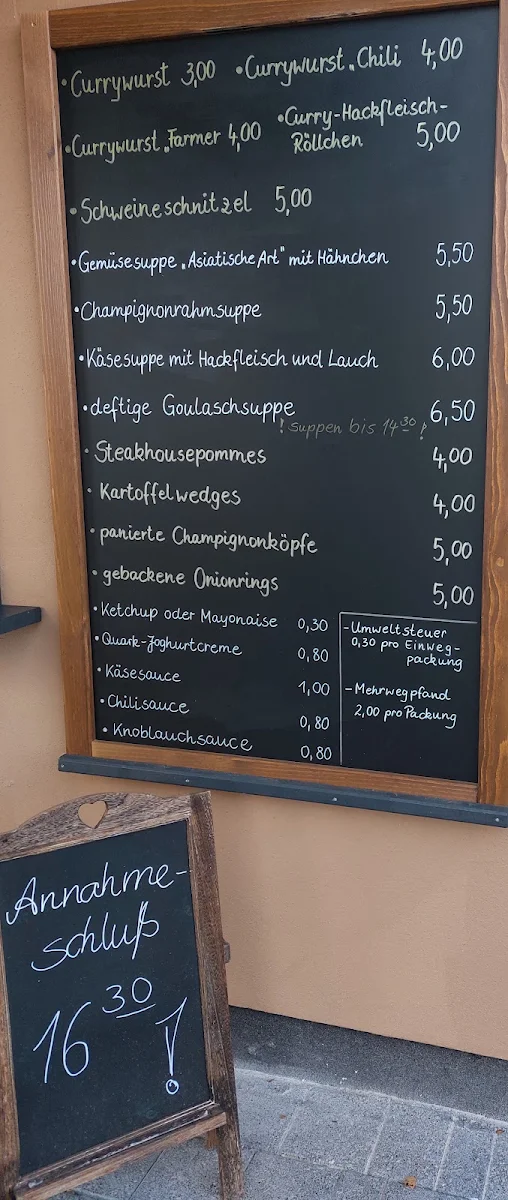 •Currywurst 3,00 •Currywurst „Chili 4,00
•Currywurst „Farmer 4,00 •Curry-Hackfleisch-
Röllchen 5,00
•Schweineschnitzel 5,00
•Gemüsesuppe „Asiatische Art" mit Hähnchen 5,50
•Champignonrahmsuppe 5,50
•Käsesuppe mit Hackfleisch und Lauch 6,00
•deftige Goulaschsuppe 6,50
! Suppen bis 14³⁰ !
•Steakhousepommes 4,00
•Kartoffelwedges 4,00
•panierte Champignonköpfe 5,00
•gebackene Onionrings 5,00
•Ketchup oder Mayonaise 0,30
•Quark-Joghurtcreme 0,80
•Käsesauce 1,00
•Chilisauce 0,80
•Knoblauchsauce 0,80
-Umweltsteuer
0,30 pro Einweg-
packung
-Mehrwegpfand
2,00 pro Packung
Annahme-
schluß
16³⁰ !